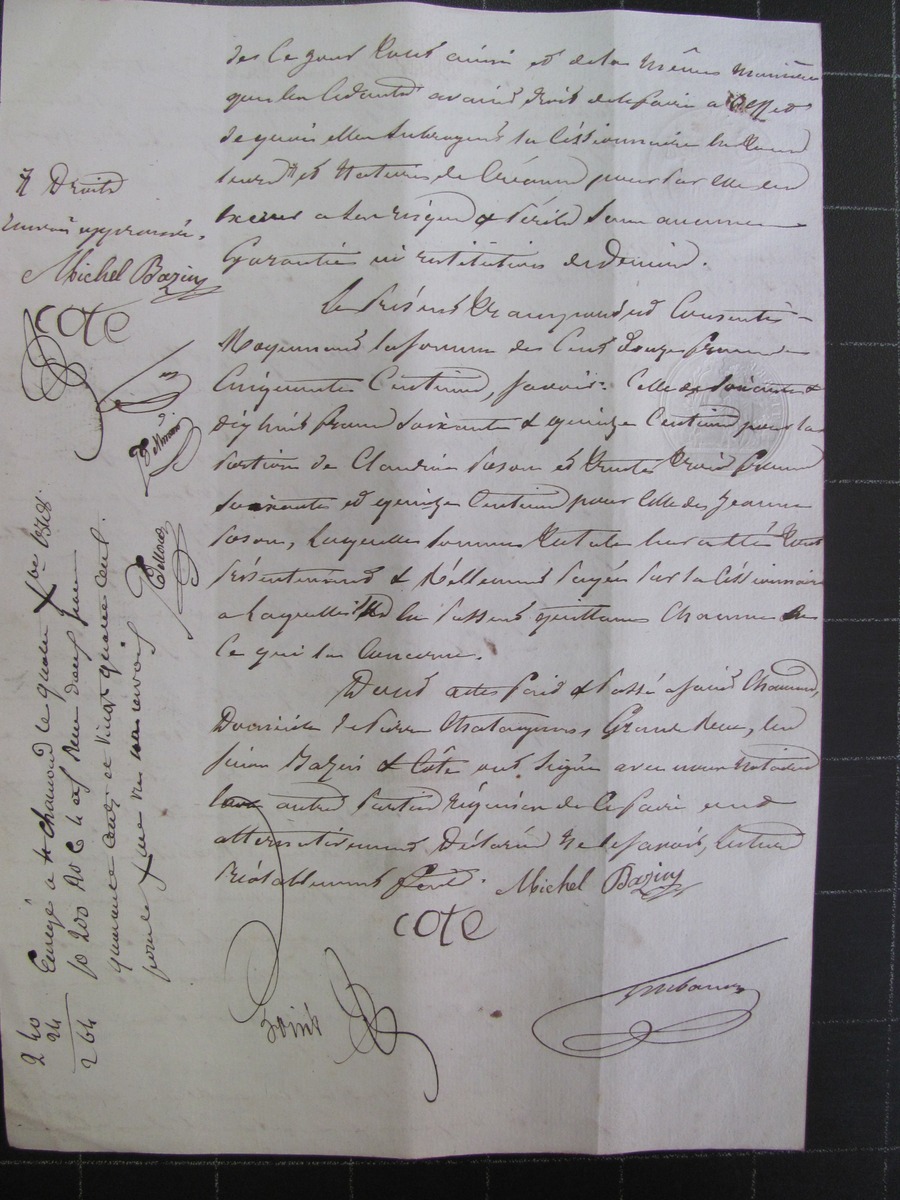 dès ce jour tout ainsi et de la même manière
que les cédants avaient droit de le faire a l'effet
de quoi elles subrogent la cessionnaire en tous
leurs # et nature de créance pour par elle les
exercer a ses risques & périls sans aucune
garantie ni restitution de deniers.
Le présent transport est consenti
moyennant la somme de cent douze francs
cinquante centimes, savoir: celle de soixante &
dix huit francs soixante & quinze centimes pour la
portion de Claudine et trente trois francs
soixante et quinze centimes pour celle de Jeanne
laquelle somme totale leur a été tout
présentement & réellement payée par la cessionnaire
a laquelle ils en passent quittance chacune en
ce qui la concerne.
Dont acte fait & passé a Saint Chamond,
Domicile de Pierre Grande Rue, les
sieurs Bazin & Côte ont signé avec nous notaires
les autres parties requises de ce faire ont
alternativement déclaré ne le savoir, lecture
préalablement faite. Michel Bazin
cote
# Droits
renvoi approuvé.
Michel Bazin
cote
Enregé a St chamond le quatre Xbre 1828
fo 200 Ro C 4 reçu deux francs
quarante cent et vingt quatre cent
pour le Xme un renvoi
2 40
24
2 64